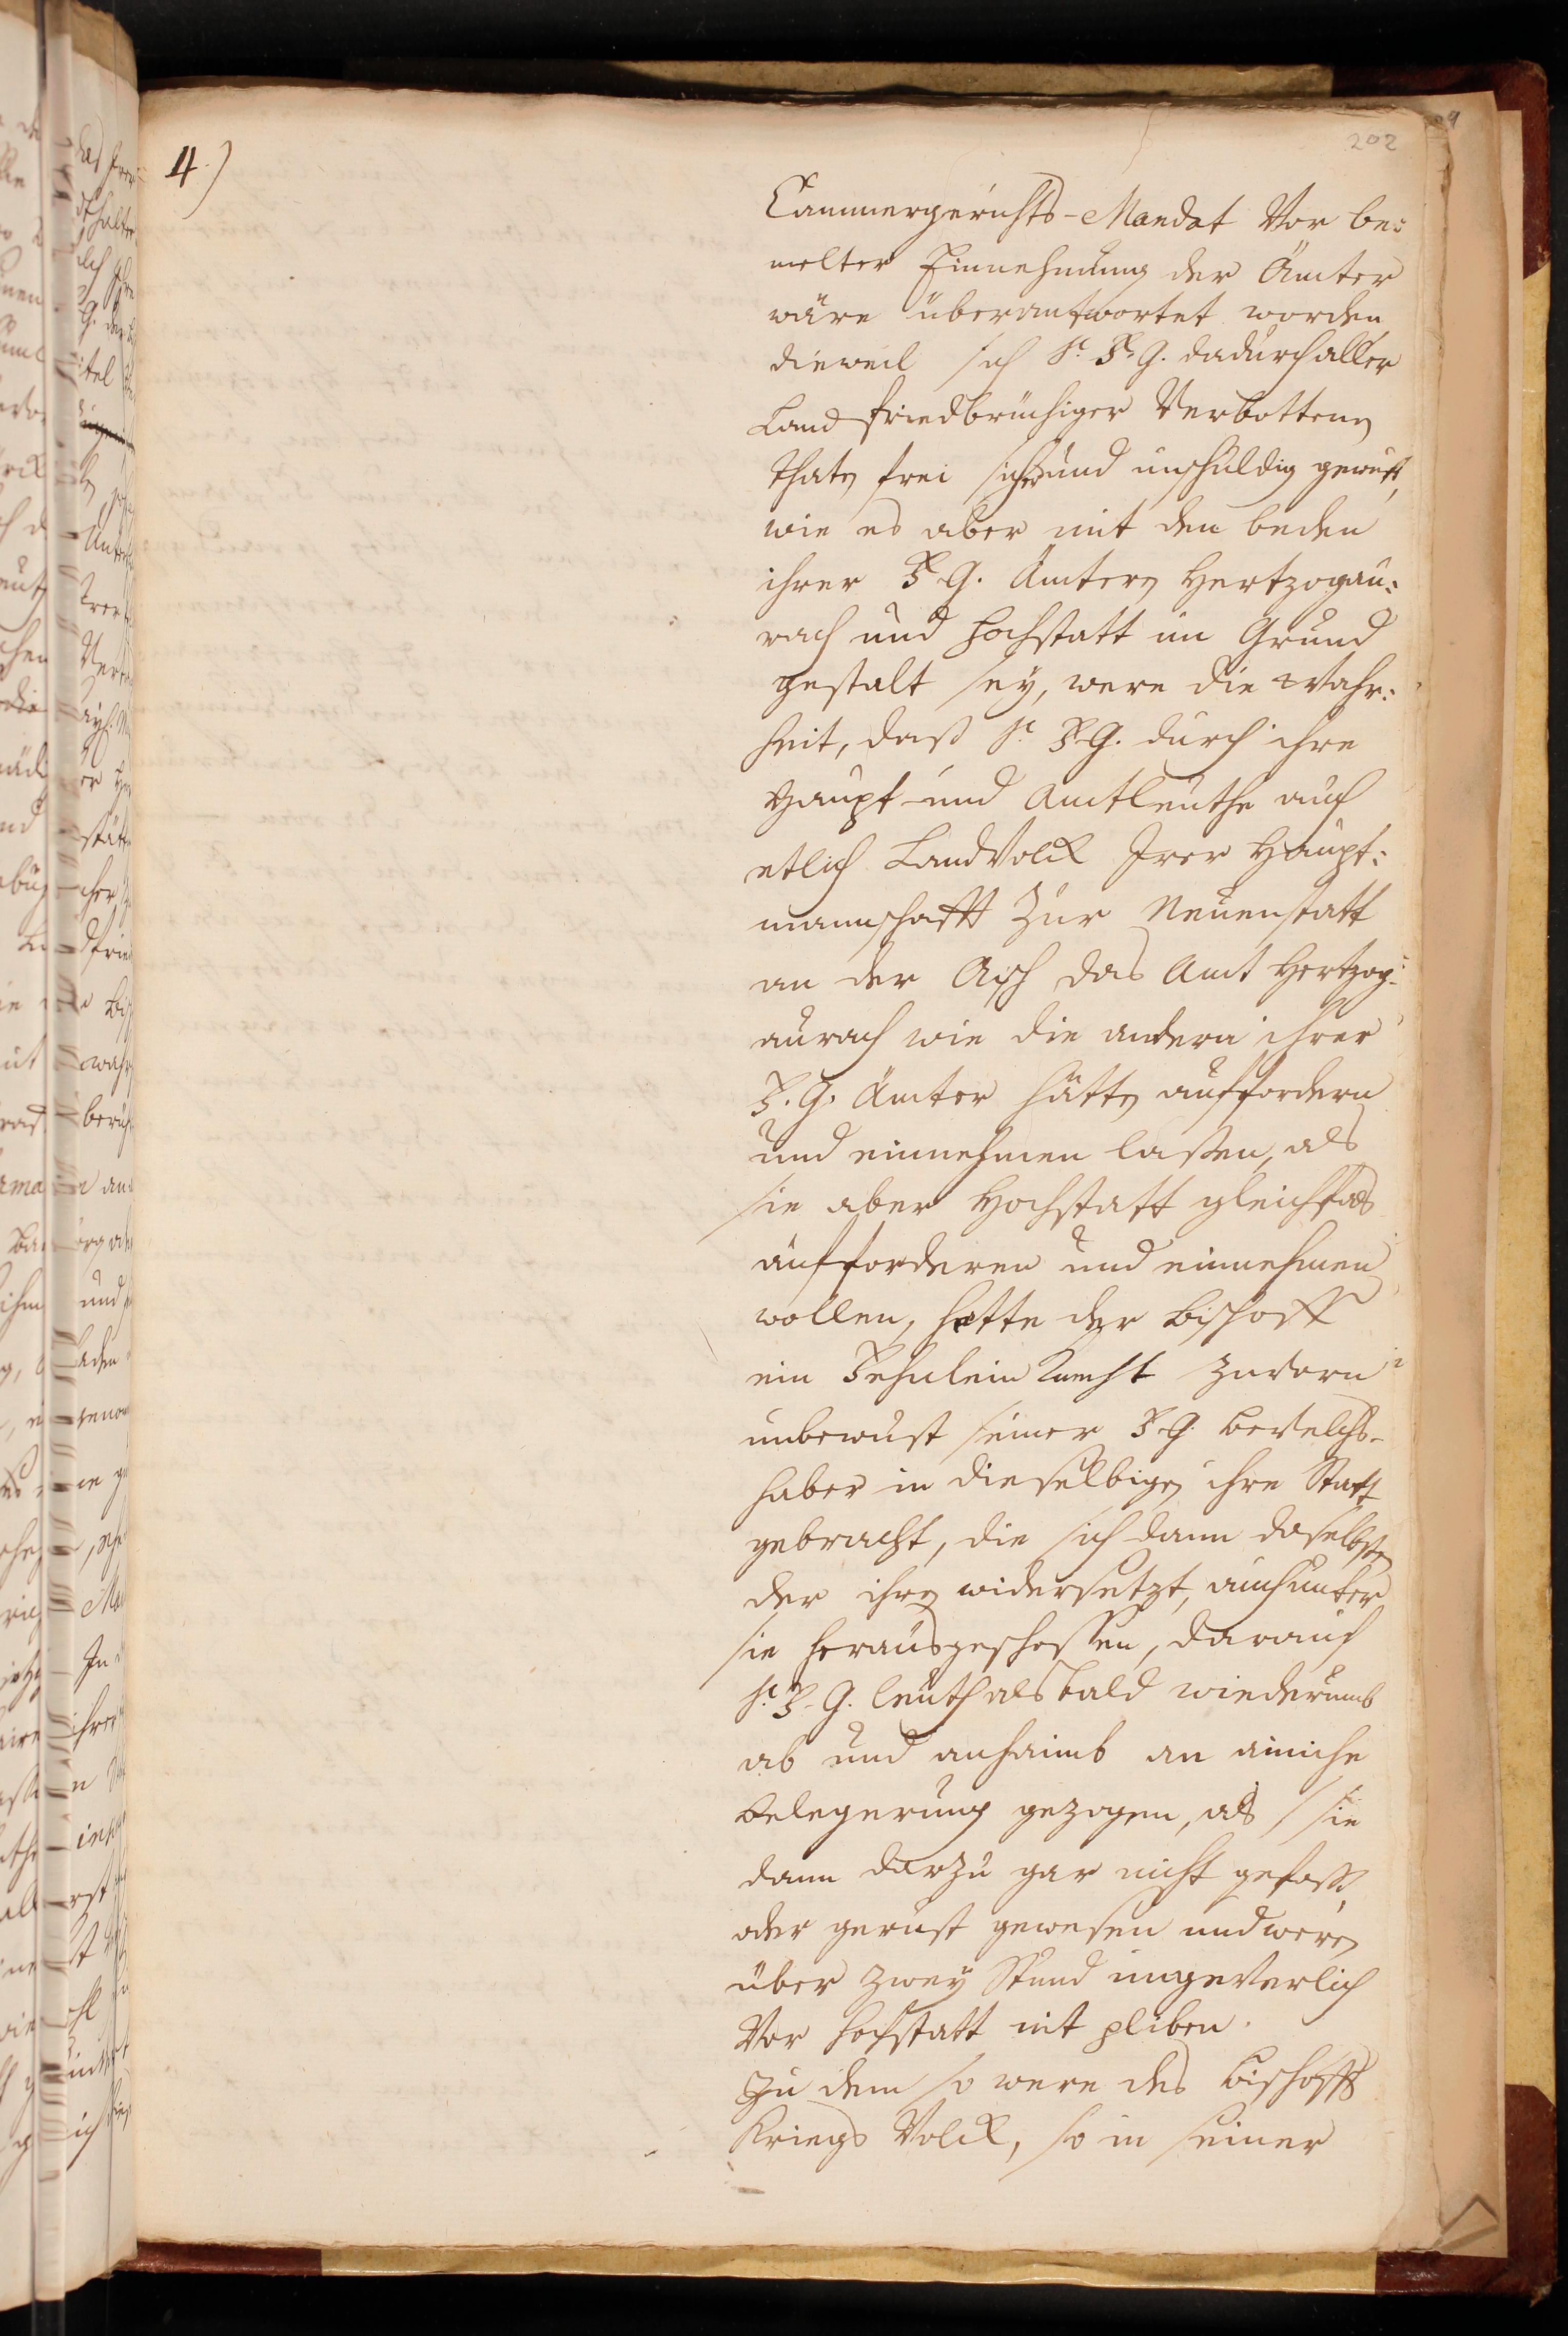 202
4.)
Cammergerichts-Mandat Vor be:
melter Einnehmung der Ämter
wäre überantwortet worden
dieweil sich Sr. F. G. dadurch aller
Landfriedbrüchiger Verbottenen
thaten frei sicher und unschuldig gewust,
wie es aber mit den beden
ihrer F. G. Ämtern Hertzogau:
rach und Hochstatt im Grund
gestalt sey, were die Wahr:
heit, daß Sr. F. G. durch ihre
Haupt- und Amtleuthe auch
etlich LandVolck Irer Haupt:
mannschafft Zur Neuenstatt
an der Aisch das Amt Hertzog:
aurach wie die andern ihrer
F. G. Ämter hätten auffordern
und einnehmen laßen, als
sie aber Hochstatt gleichfals
aufforderen und einnehmen
wollen, hette der Bischoff
ein Fehnlein Knecht zuvorn
unbewust seiner F. G. Bevelchs-
haber in dieselbigen ihre Statt
gebracht, die sich dann daselbsten
der ihren widersetzt, auch unter
sie herausgeschoßen, darauf
Sr. F. G. leuth alsbald wiederumb
ab und anhaimb an ainiche
Belegerung gezogen, als sie
dann darzu gar nicht gefasst,
oder gerüst gewesen und weren
über zwey Stund ungeverlich
Vor Hochstatt nit pliben.
Zu dem so were des Bischoffs
Kriegs Volck, so in seiner